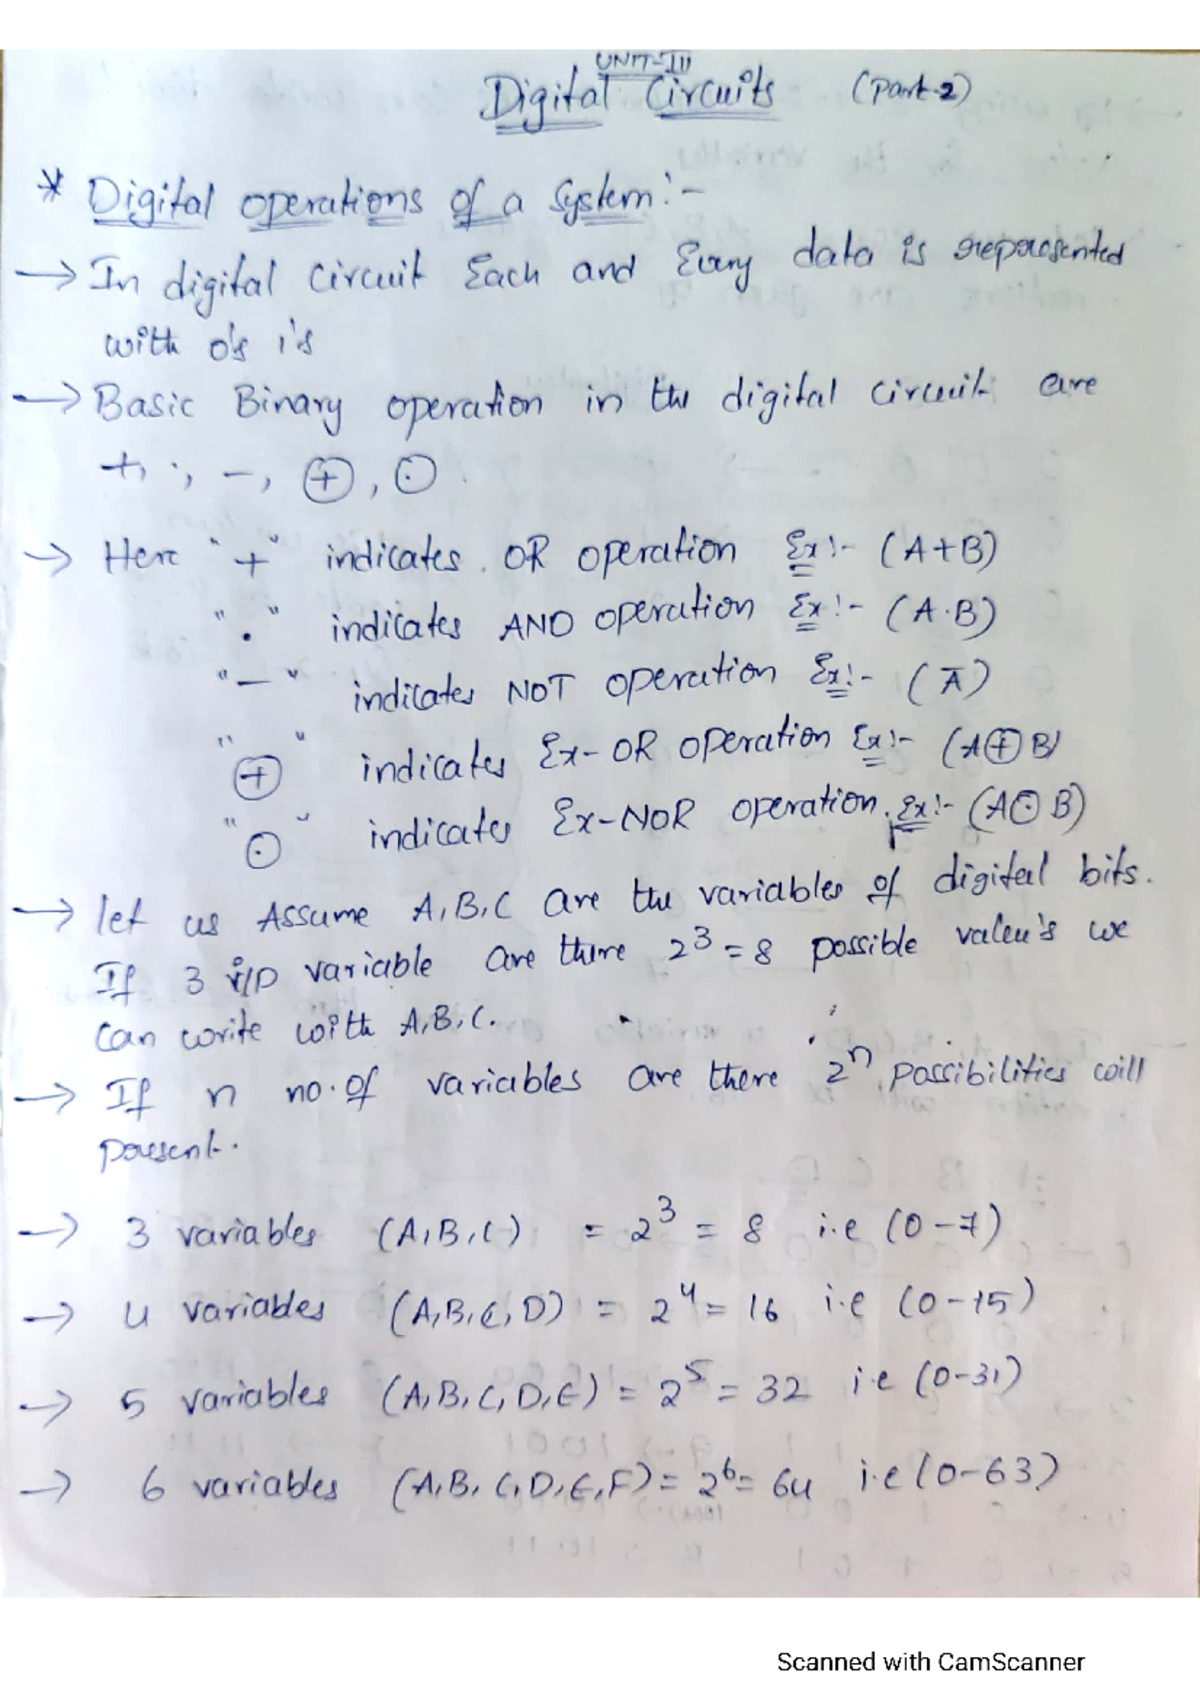 UNIT-III
Digital Circuits (Part-2)
* Digital operations of a System:-
→ In digital circuit Each and Every data is represented
with 0's 1's
→ Basic Binary operation in the digital circuit are
+, ·, —, ⊕, ⊙.
→ Here "+" indicates OR operation Ex:- (A+B)
"·" indicates AND operation Ex:- (A·B)
"—" indicates NOT operation Ex:- (A̅)
"⊕" indicates Ex-OR operation Ex:- (A⊕B)
"⊙" indicates Ex-NOR operation. Ex:- (A⊙B)
→ let us Assume A,B,C are the variables of digital bits.
If 3 i/p variable are there 2³ = 8 possible valeu's we
can write with A,B,C.
→ If n no. of variables are there 2ⁿ possibilities will
present.
→ 3 variables (A,B,C) = 2³ = 8 i.e (0-7)
→ 4 variables (A,B,C,D) = 2⁴ = 16 i.e (0-15)
→ 5 variables (A,B,C,D,E) = 2⁵ = 32 i.e (0-31)
→ 6 variables (A,B,C,D,E,F) = 2⁶ = 64 i.e (0-63)
Scanned with CamScanner